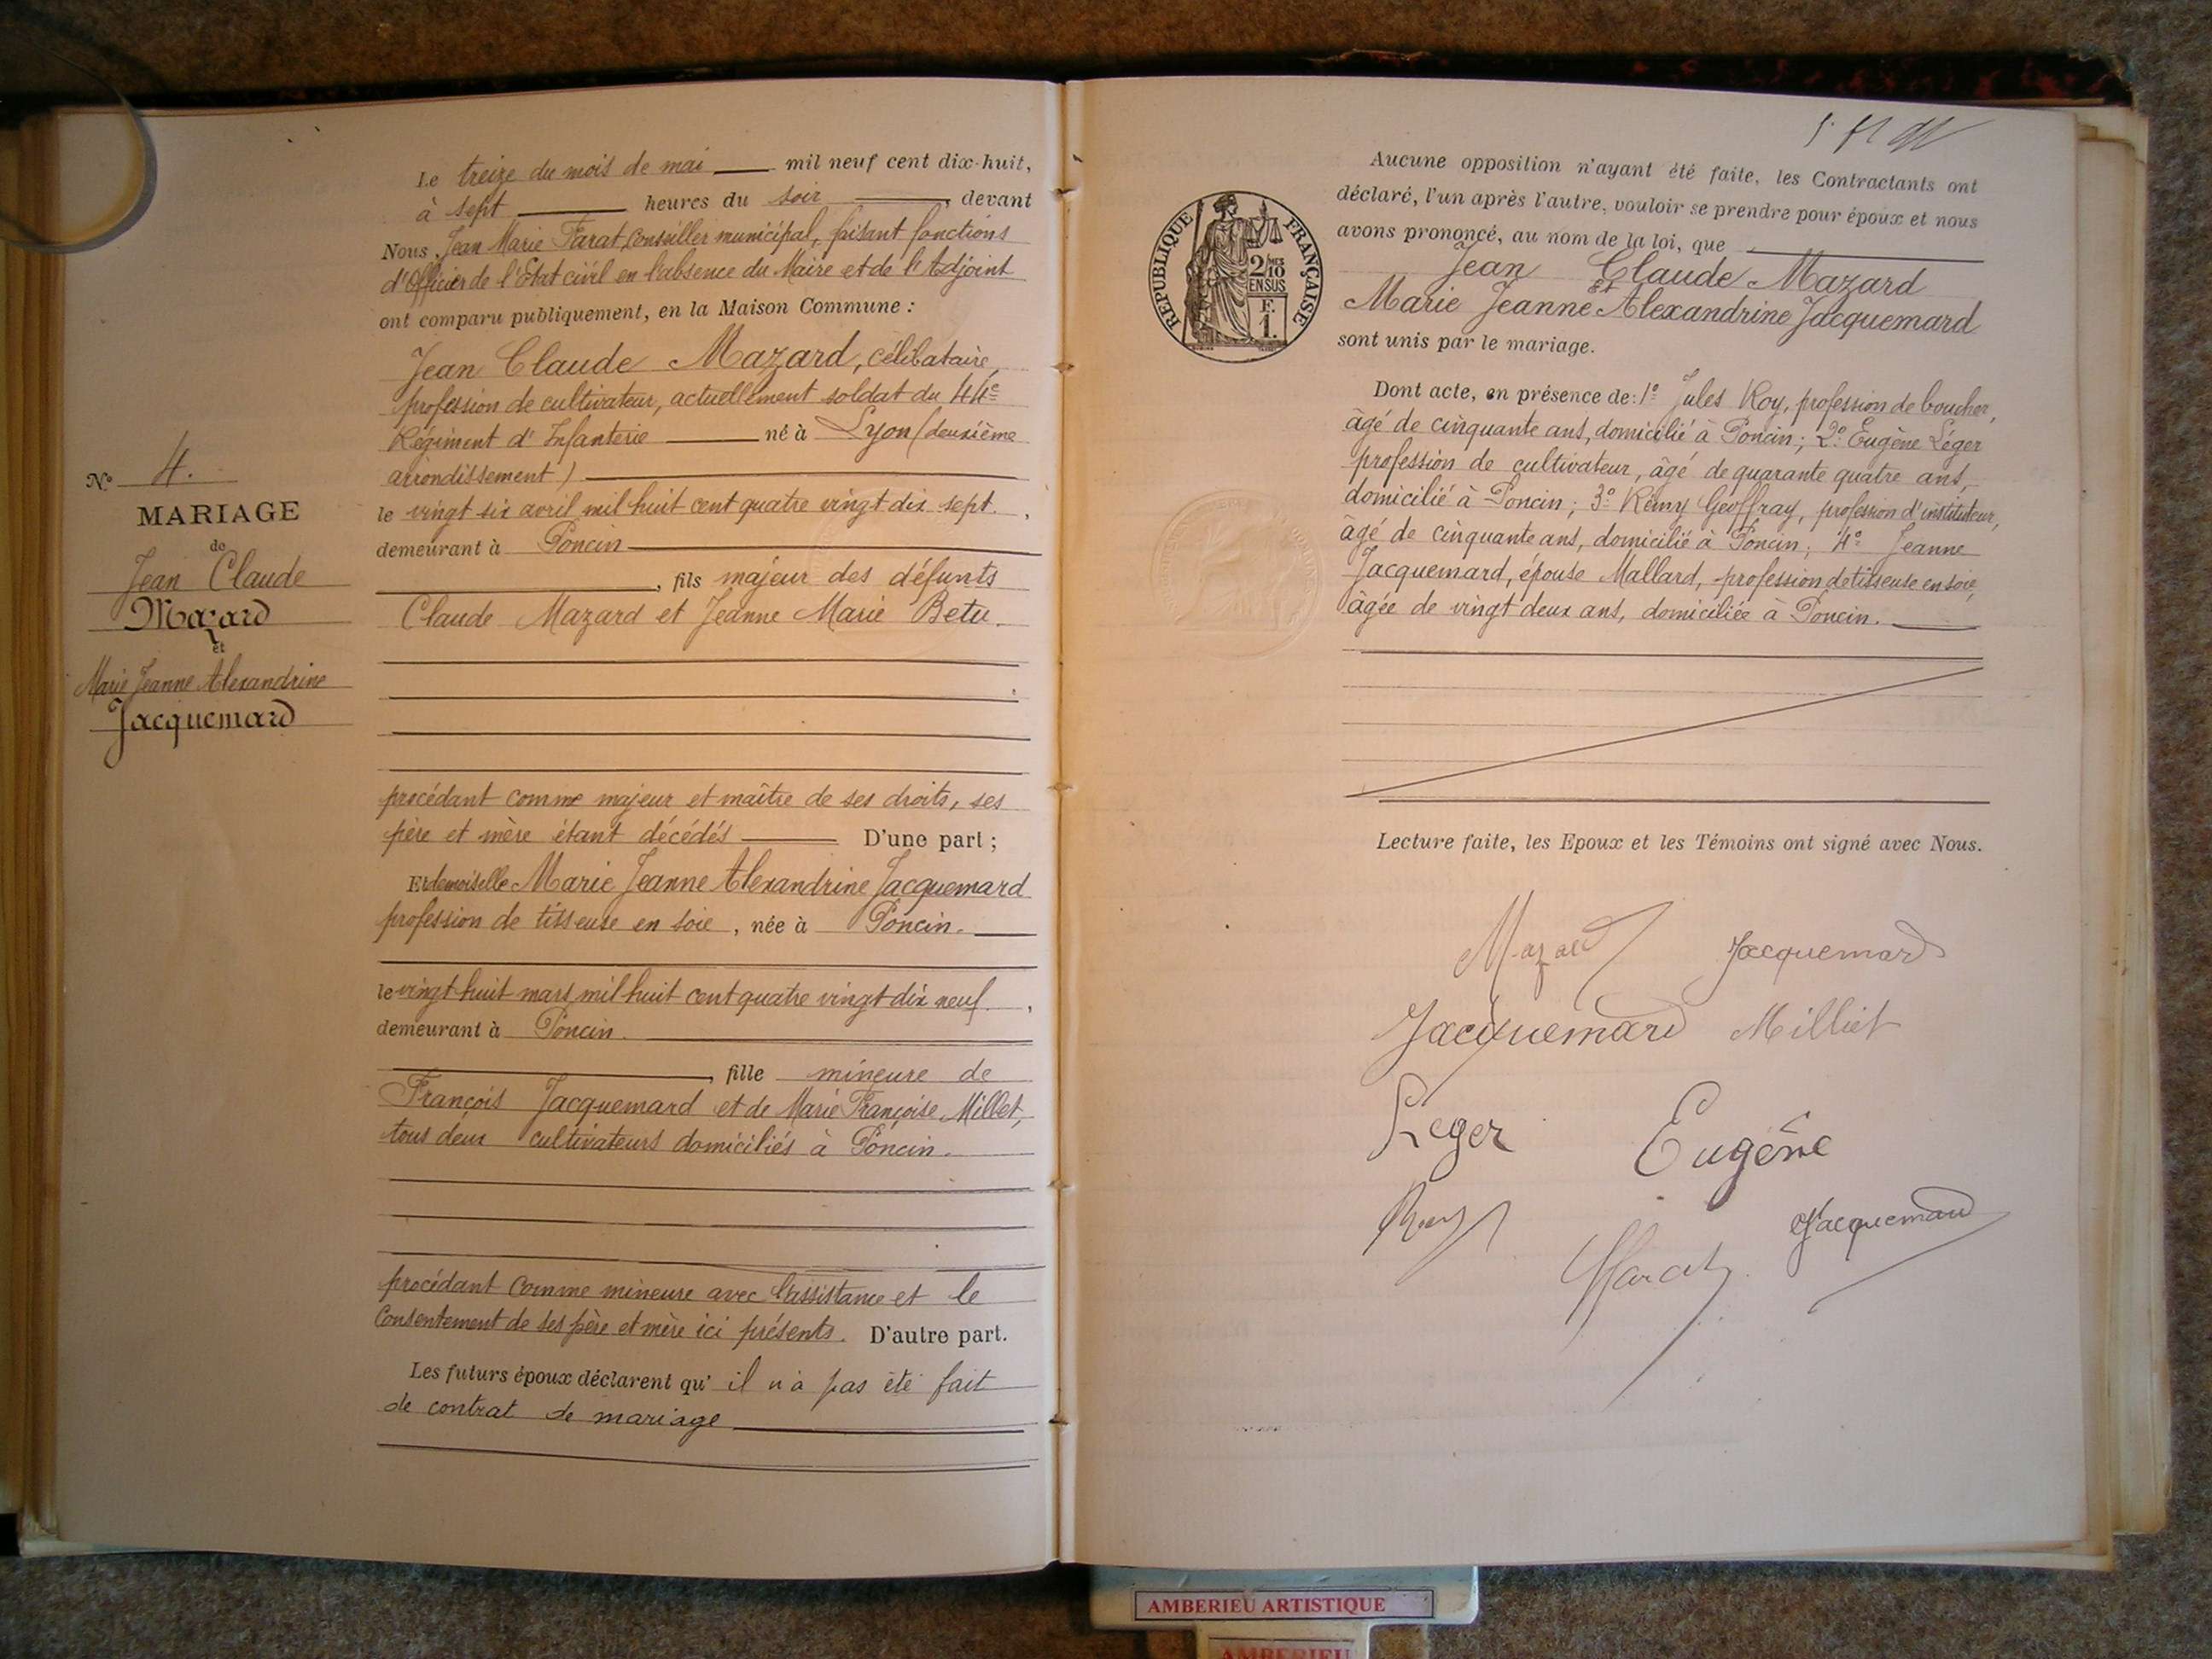 N° 4.
MARIAGE
de
Jean Claude
Mazard
et
Marie Jeanne Alexandrine
Jacquemard
Le treize du mois de mai mil neuf cent dix-huit,
à sept heures du soir, devant
Nous, Jean Marie Farat, Conseiller municipal, faisant fonctions
d'Officier de l'Etat civil en l'absence du Maire et de l'Adjoint
ont comparu publiquement, en la Maison Commune :
Jean Claude Mazard, célibataire,
profession de cultivateur, actuellement soldat du 44e
Régiment d'Infanterie né à Lyon (deuxième
arrondissement)
le vingt six avril mil huit cent quatre vingt dix sept.,
demeurant à Poncin
, fils majeur des défunts
Claude Mazard et Jeanne Marie Betu.
procédant comme majeur et maître de ses droits, ses
père et mère étant décédés D'une part ;
Et demoiselle Marie Jeanne Alexandrine Jacquemard
profession de tisseuse en soie, née à Poncin.
le vingt huit mars mil huit cent quatre vingt dix neuf.,
demeurant à Poncin.
, fille mineure de
François Jacquemard et de Marie Françoise Millet,
tous deux cultivateurs domiciliés à Poncin.
procédant comme mineure avec l'assistance et le
Consentement de ses père et mère ici présents. D'autre part.
Les futurs époux déclarent qu'il n'a pas été fait
de contrat de mariage
Aucune opposition n'ayant été faite, les Contractants ont
déclaré, l'un après l'autre, vouloir se prendre pour époux et nous
avons prononcé, au nom de la loi, que
Jean Claude Mazard
et
Marie Jeanne Alexandrine Jacquemard
sont unis par le mariage.
Dont acte, en présence de : 1° Jules Roy, profession de boucher,
âgé de cinquante ans, domicilié à Poncin ; 2° Eugène Léger
profession de cultivateur, âgé de quarante quatre ans,
domicilié à Poncin ; 3° Rémy Geoffray, profession d'instituteur,
âgé de cinquante ans, domicilié à Poncin ; 4° Jeanne
Jacquemard, épouse Mallard, profession de tisseuse en soie,
âgée de vingt deux ans, domiciliée à Poncin.
Lecture faite, les Epoux et les Témoins ont signé avec Nous.
Mazard Jacquemard
Jacquemard Milliet
Leger Eugéne
Roy Jacquemard
REPUBLIQUE FRANÇAISE
2/10 MES
EN SUS
F.
1.
AMBERIEU ARTISTIQUE
AMBERIEU